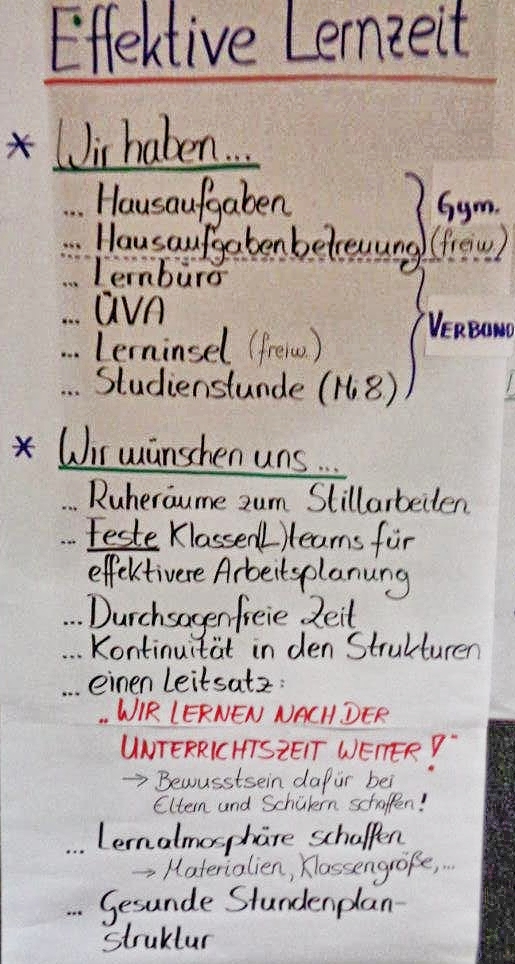 Effektive Lernzeit
* Wir haben...
... Hausaufgaben
Gym.
... Hausaufgabenbetreuung (freiw)
... Lernbüro
... ÜVA
VERBUND
... Lerninsel (freiw.)
... Studienstunde (Mi 8)
* Wir wünschen uns...
... Ruheräume zum Stillarbeiten
... Feste Klassen(L)teams für
effektivere Arbeitsplanung
... Durchsagenfreie Zeit
... Kontinuität in den Strukturen
... einen Leitsatz:
„WIR LERNEN NACH DER
UNTERRICHTSZEIT WEITER!“
→ Bewusstsein dafür bei
Eltern und Schülern schaffen!
... Lernatmosphäre schaffen
→ Materialien, Klassengröße,...
... Gesunde Stundenplan-
struktur